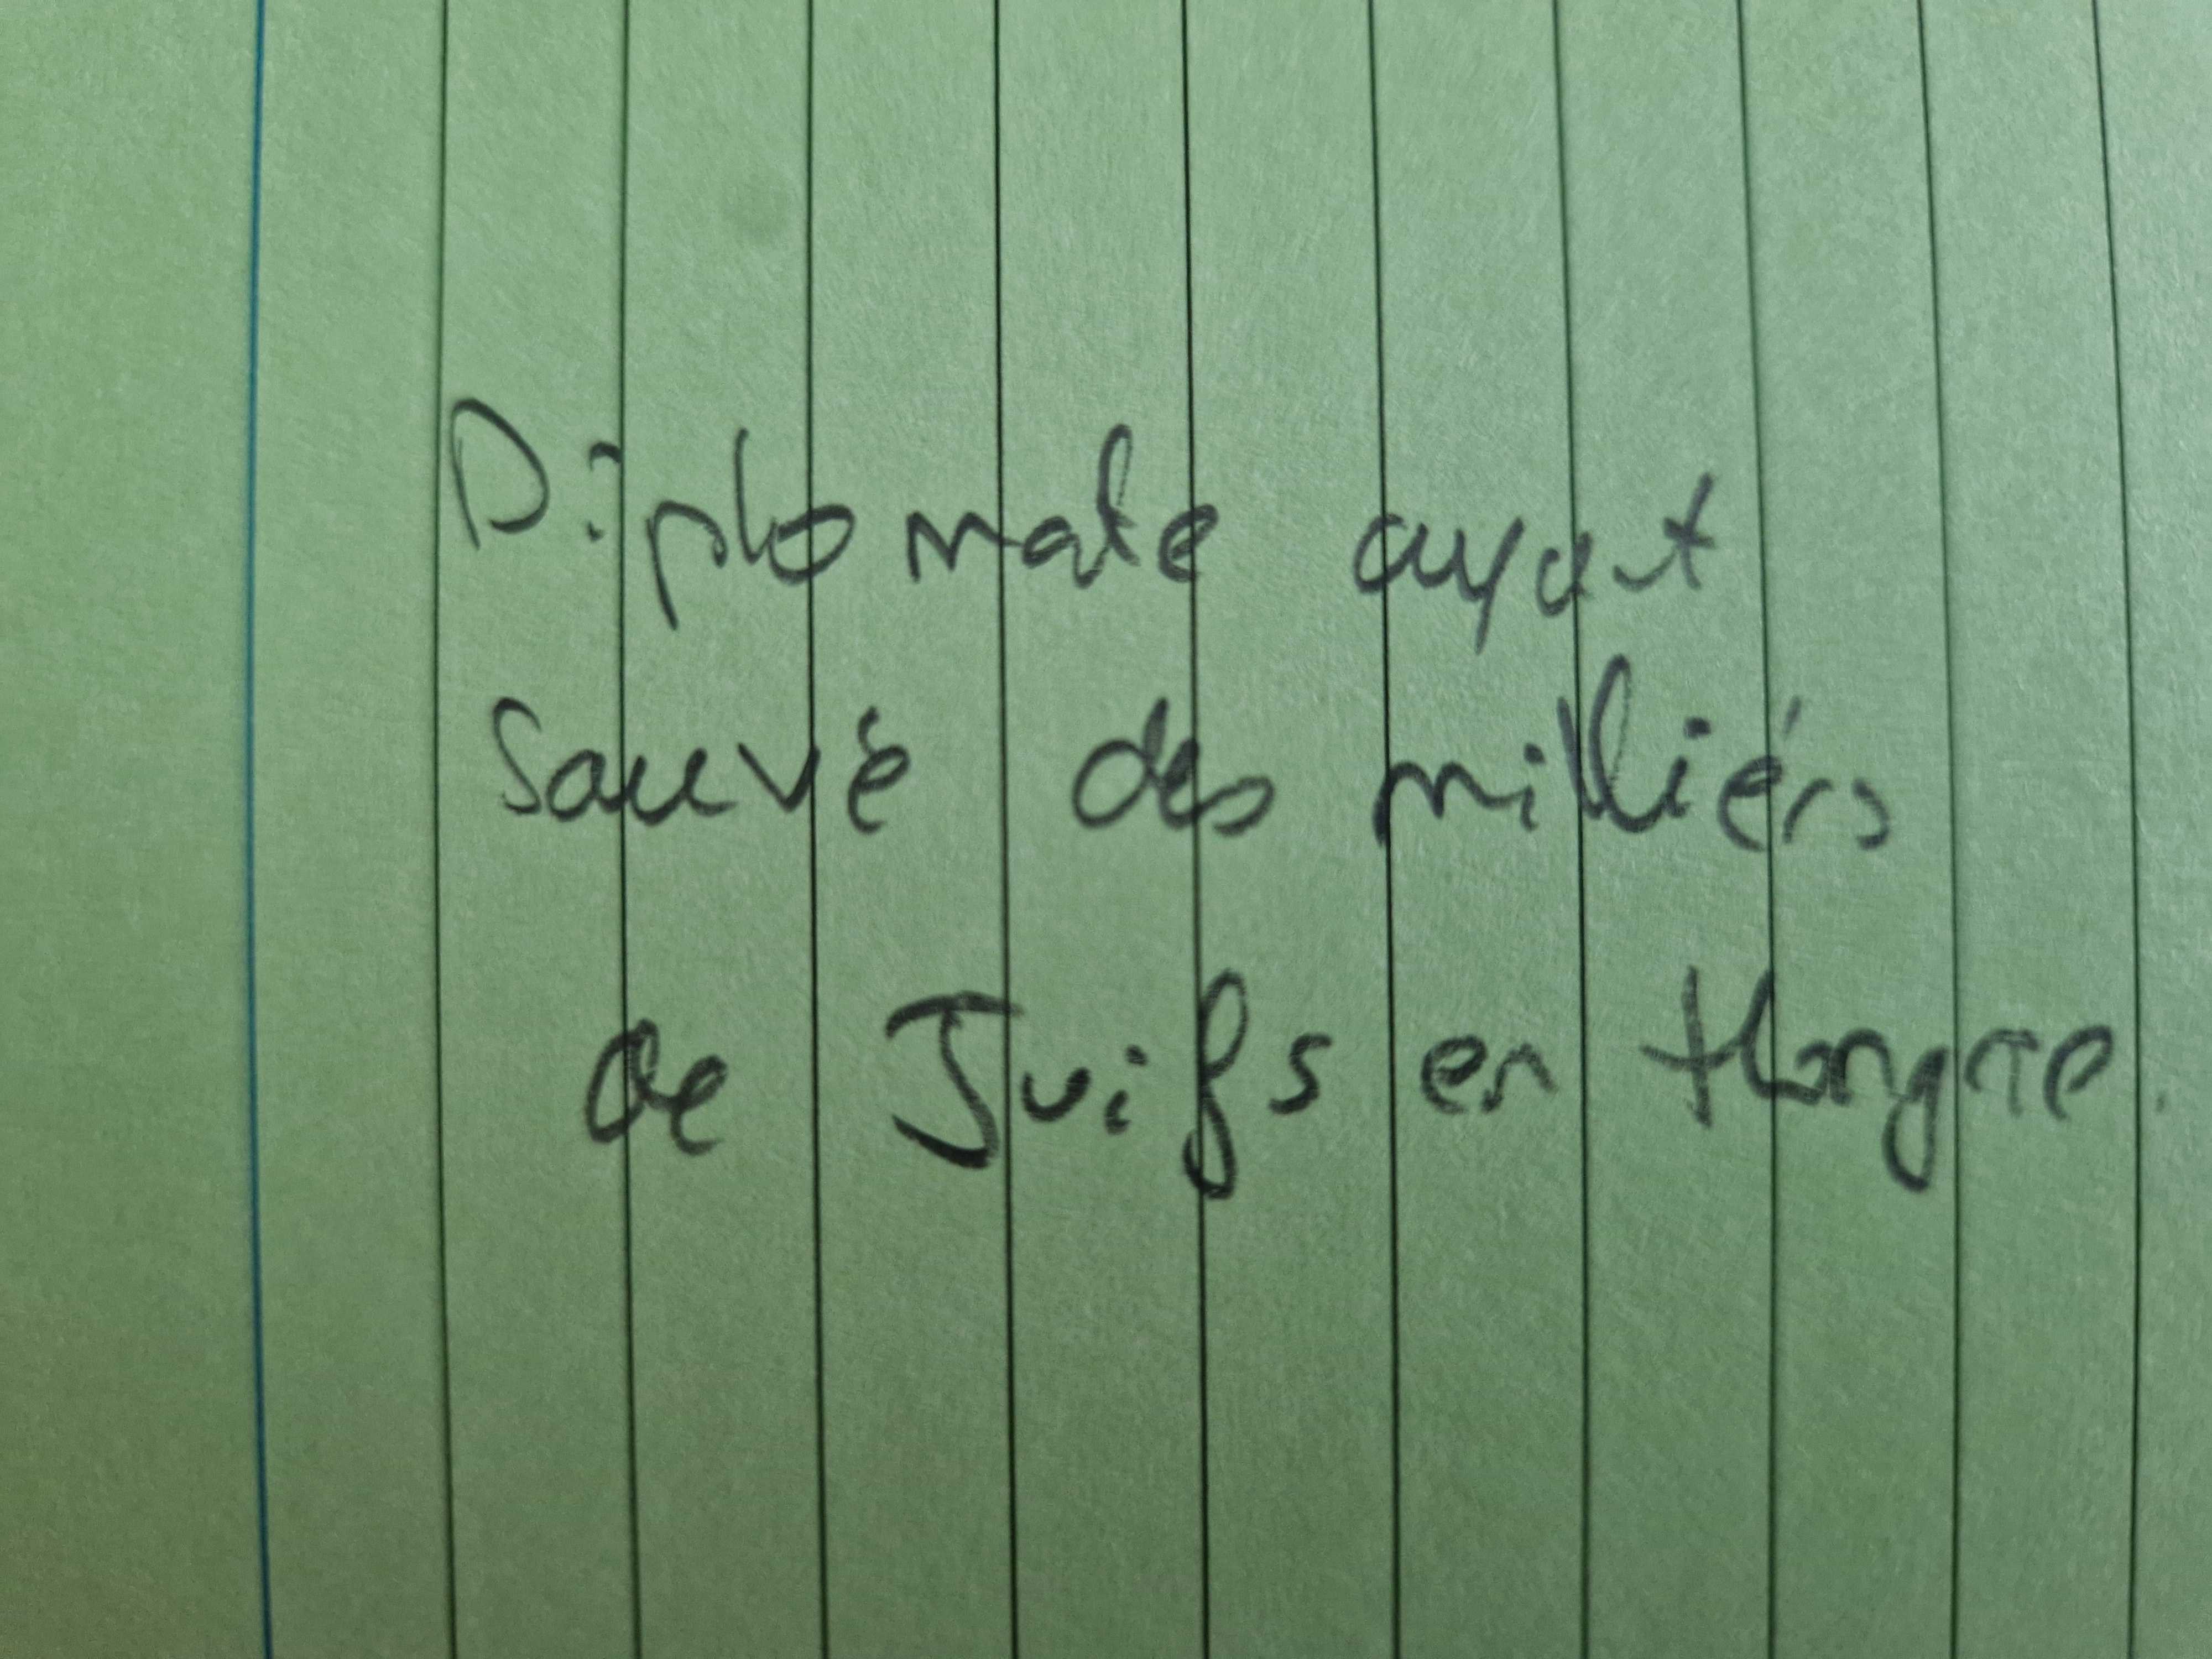 Diplomate ayant
Sauvé des milliérs
de Juifs en Hongrie.